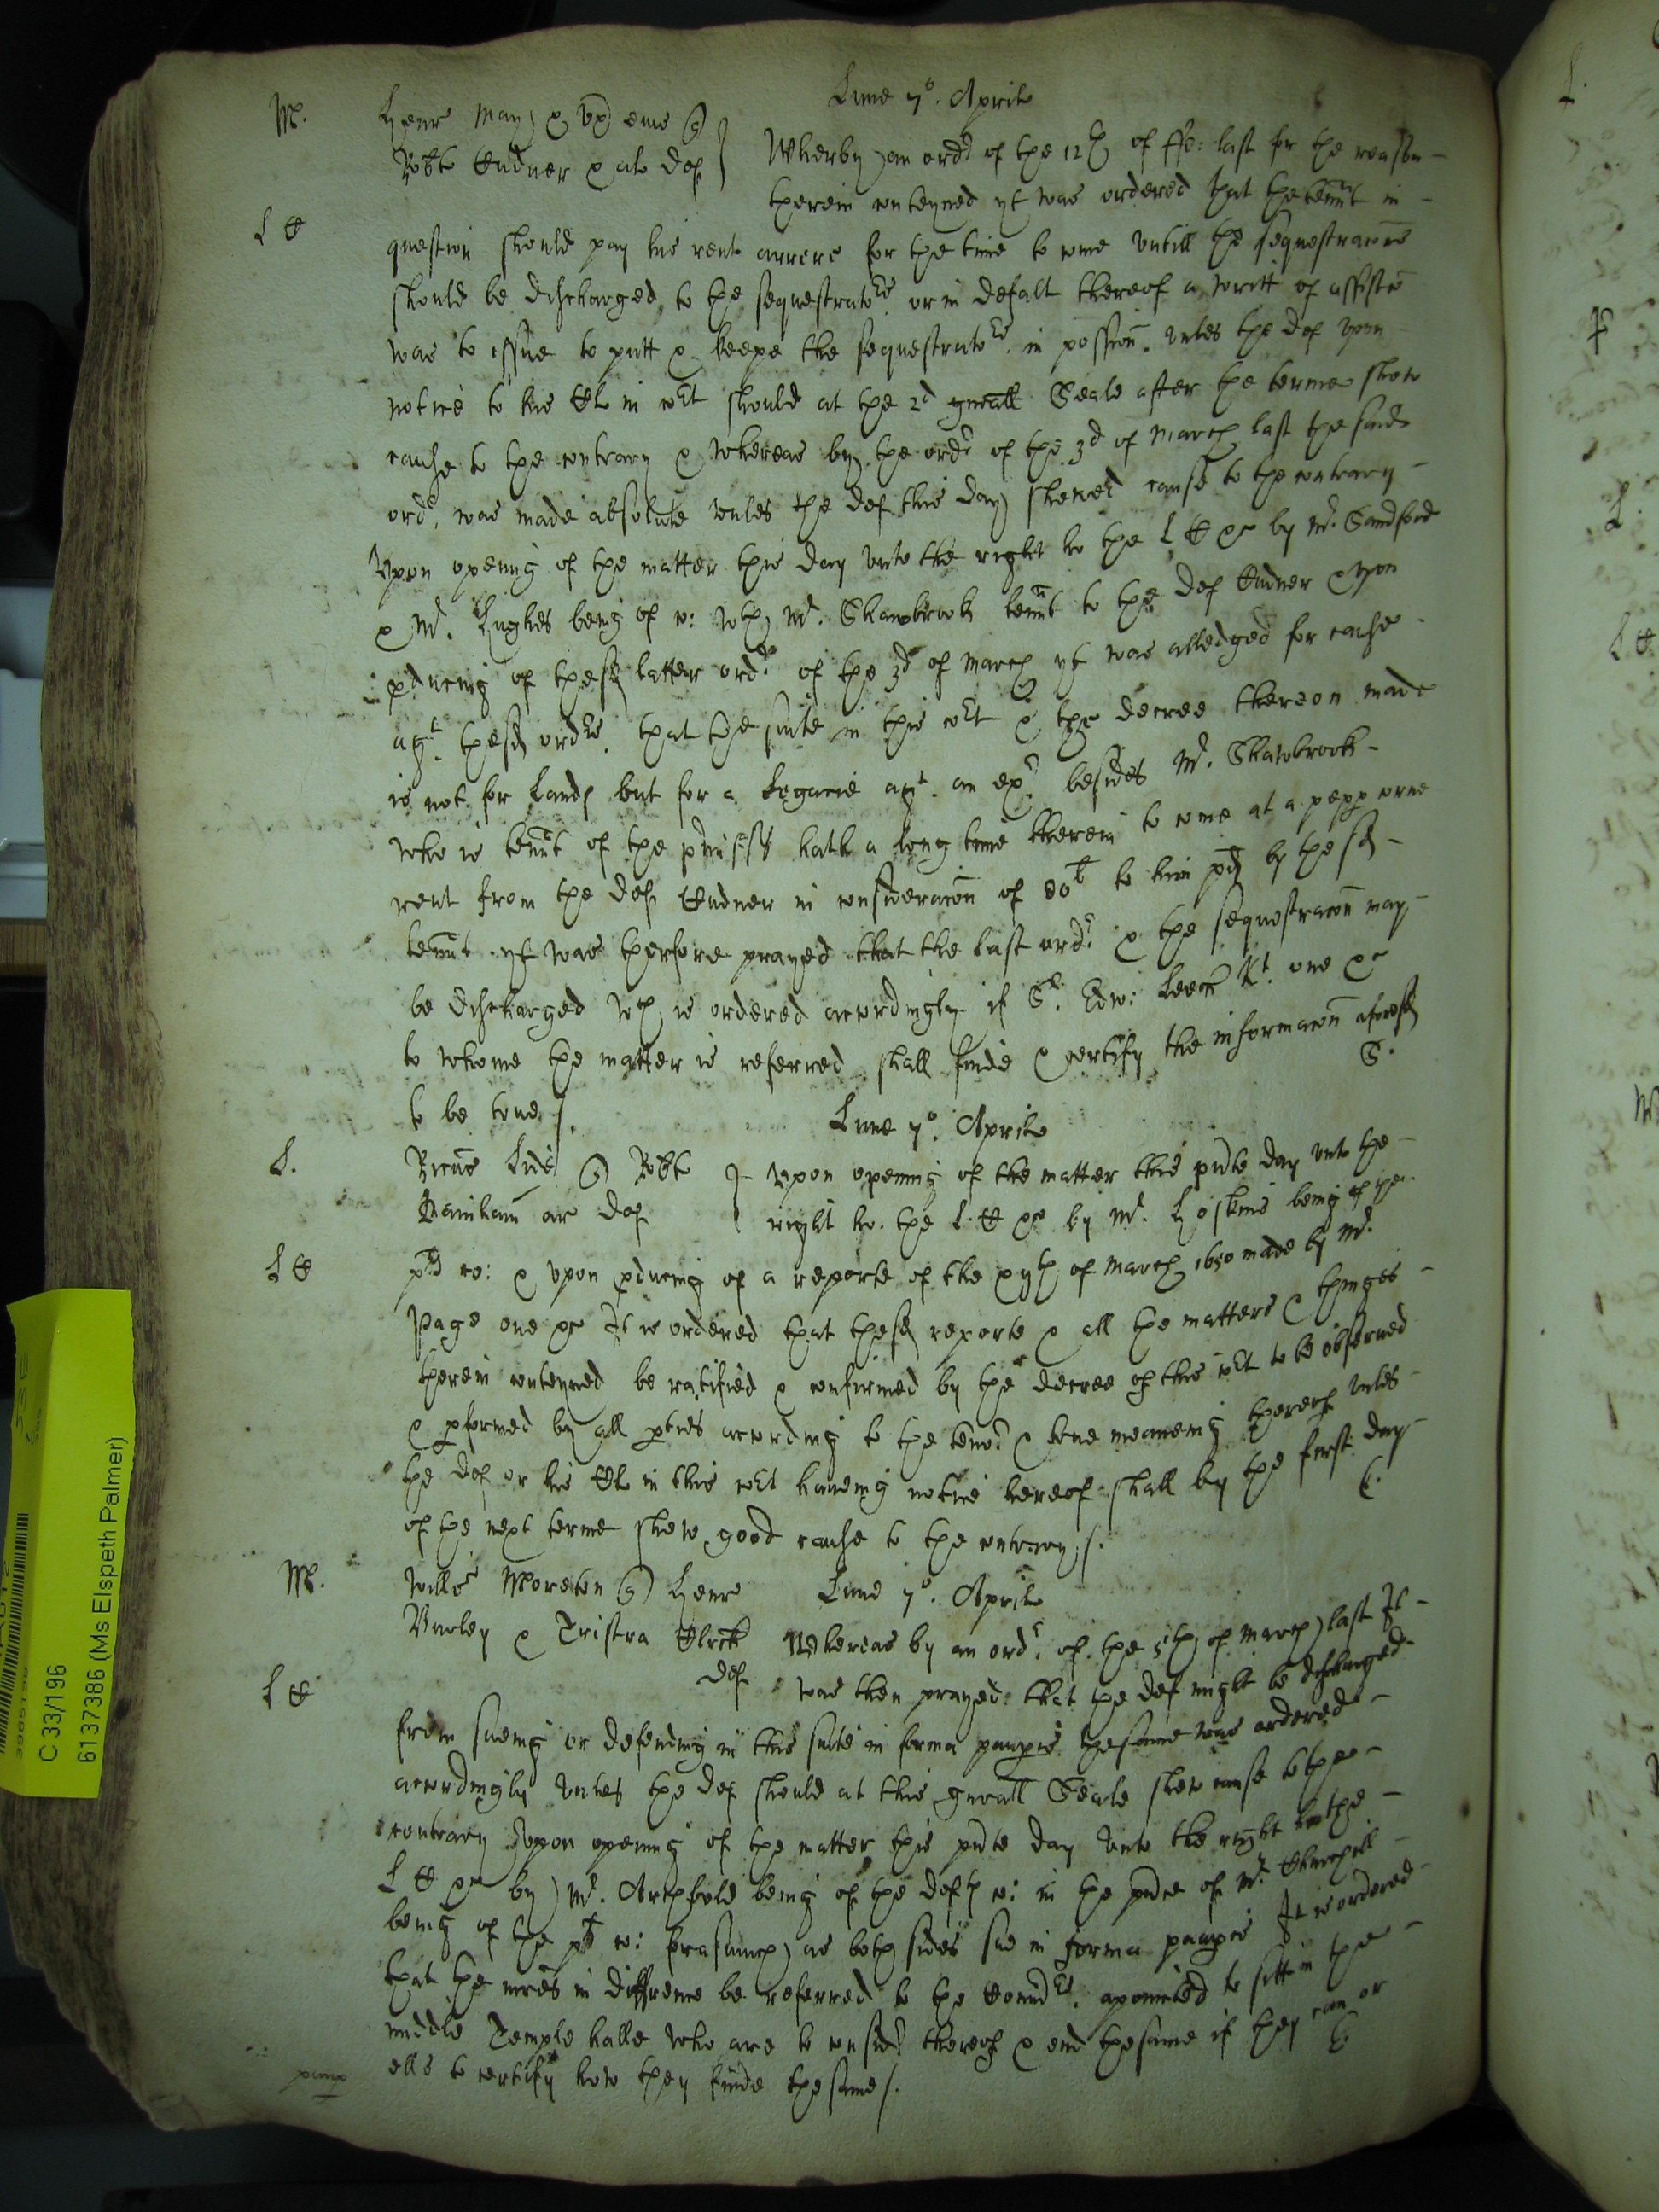 Lune 7°. Aprilis
M.
Henr May & ux eius
Robte Tudner & al def
Wherby an ordr of the 12th of ffe: last for the reasons
therein conteyned yt was ordered that the tennt in
L C
question should pay his rent arrere for the time to come untill the sequestracon
should be discharged, to the sequestrators. or in defalt thereof a writt of assiste
was to issue to putt & keepe the sequestrators in possion. unles the def upon
notice to his Cl in cort should at the 2d gnrall Seale after the terme shew
cause to the contrary & whereas by the ordr of the 3d of March last the said
ordr. was made absolute unles the def this day shewed cause to the contrary
Upon opening of the matter this day unto the right ho the L C &c by Mr. Sandford
& Mr. Hughes being of co: wth Mr. Shawbrook tennt to the def & upon
pducing of the sd latter ordr of the 3d of March yt was alledged for cause
agt. the sd ordrs. that the suite in this cort & the decree thereon made
is not for Lands but for a Legacie agt. an exr. besides Mr. Shawbrook
who is tennt of the prmisses hath a long time therein to come at a pepp corne
rent from the def in consideracon of 80l to him pd by the sd
tennt. yt was therfore prayed that the last ordr. & the sequestracon may
be discharged wch is ordered accordingly if Sr. Edw: Leech Kt. one &c
to whome the matter is referred shall finde & certify the informacon aforesd
to be true /.
S.
Lune 7°. Aprilis
L.
Ricus Robte
ar def
Upon opening of the matter this pnte day unto the
right ho. the L. C &c by Mr. Hoskins being of the
L C
plts co: & upon pducing of a reporte of the xyth of March 1650 made by Mr.
Page one &c It is ordered that the sd reporte & all the matters & thinges
therein conteyned be ratified & confirmed by the decree of this cort to be observed
& pformed by all pties according to the tenor. & true meaneing thereof unles
the def or his Cl in this cort haveing notice hereof shall by the first day
of the next terme shew good cause to the contrary /.
M.
Willus Moreton Henr
Lune 7°. Aprilis
Burley & Tristra Clerk
def
Whereas by an ordr. of the 5th of March last It
was then prayed that the def might be discharged
L C
from sueing or defending in this suite in forma paupis the same was ordered
accordingly unles the def should at this gnrall Seale shew cause to the
contrary Upon opening of the matter this pnte day unto the right ho the
L C &c by Mr. Archbold being of the defts co: in the pnce of Mr. Churchill
being of the plts co: forasmuch as both sides sue in forma paupis It is ordered
that the mres in difference be referred to the apointed to sitt in the
middle Temple halle who are to considr thereof & end the same if they can or
ells to certify how they finde the same /.
C 33/196
61737386 (Ms Elspeth Palmer)